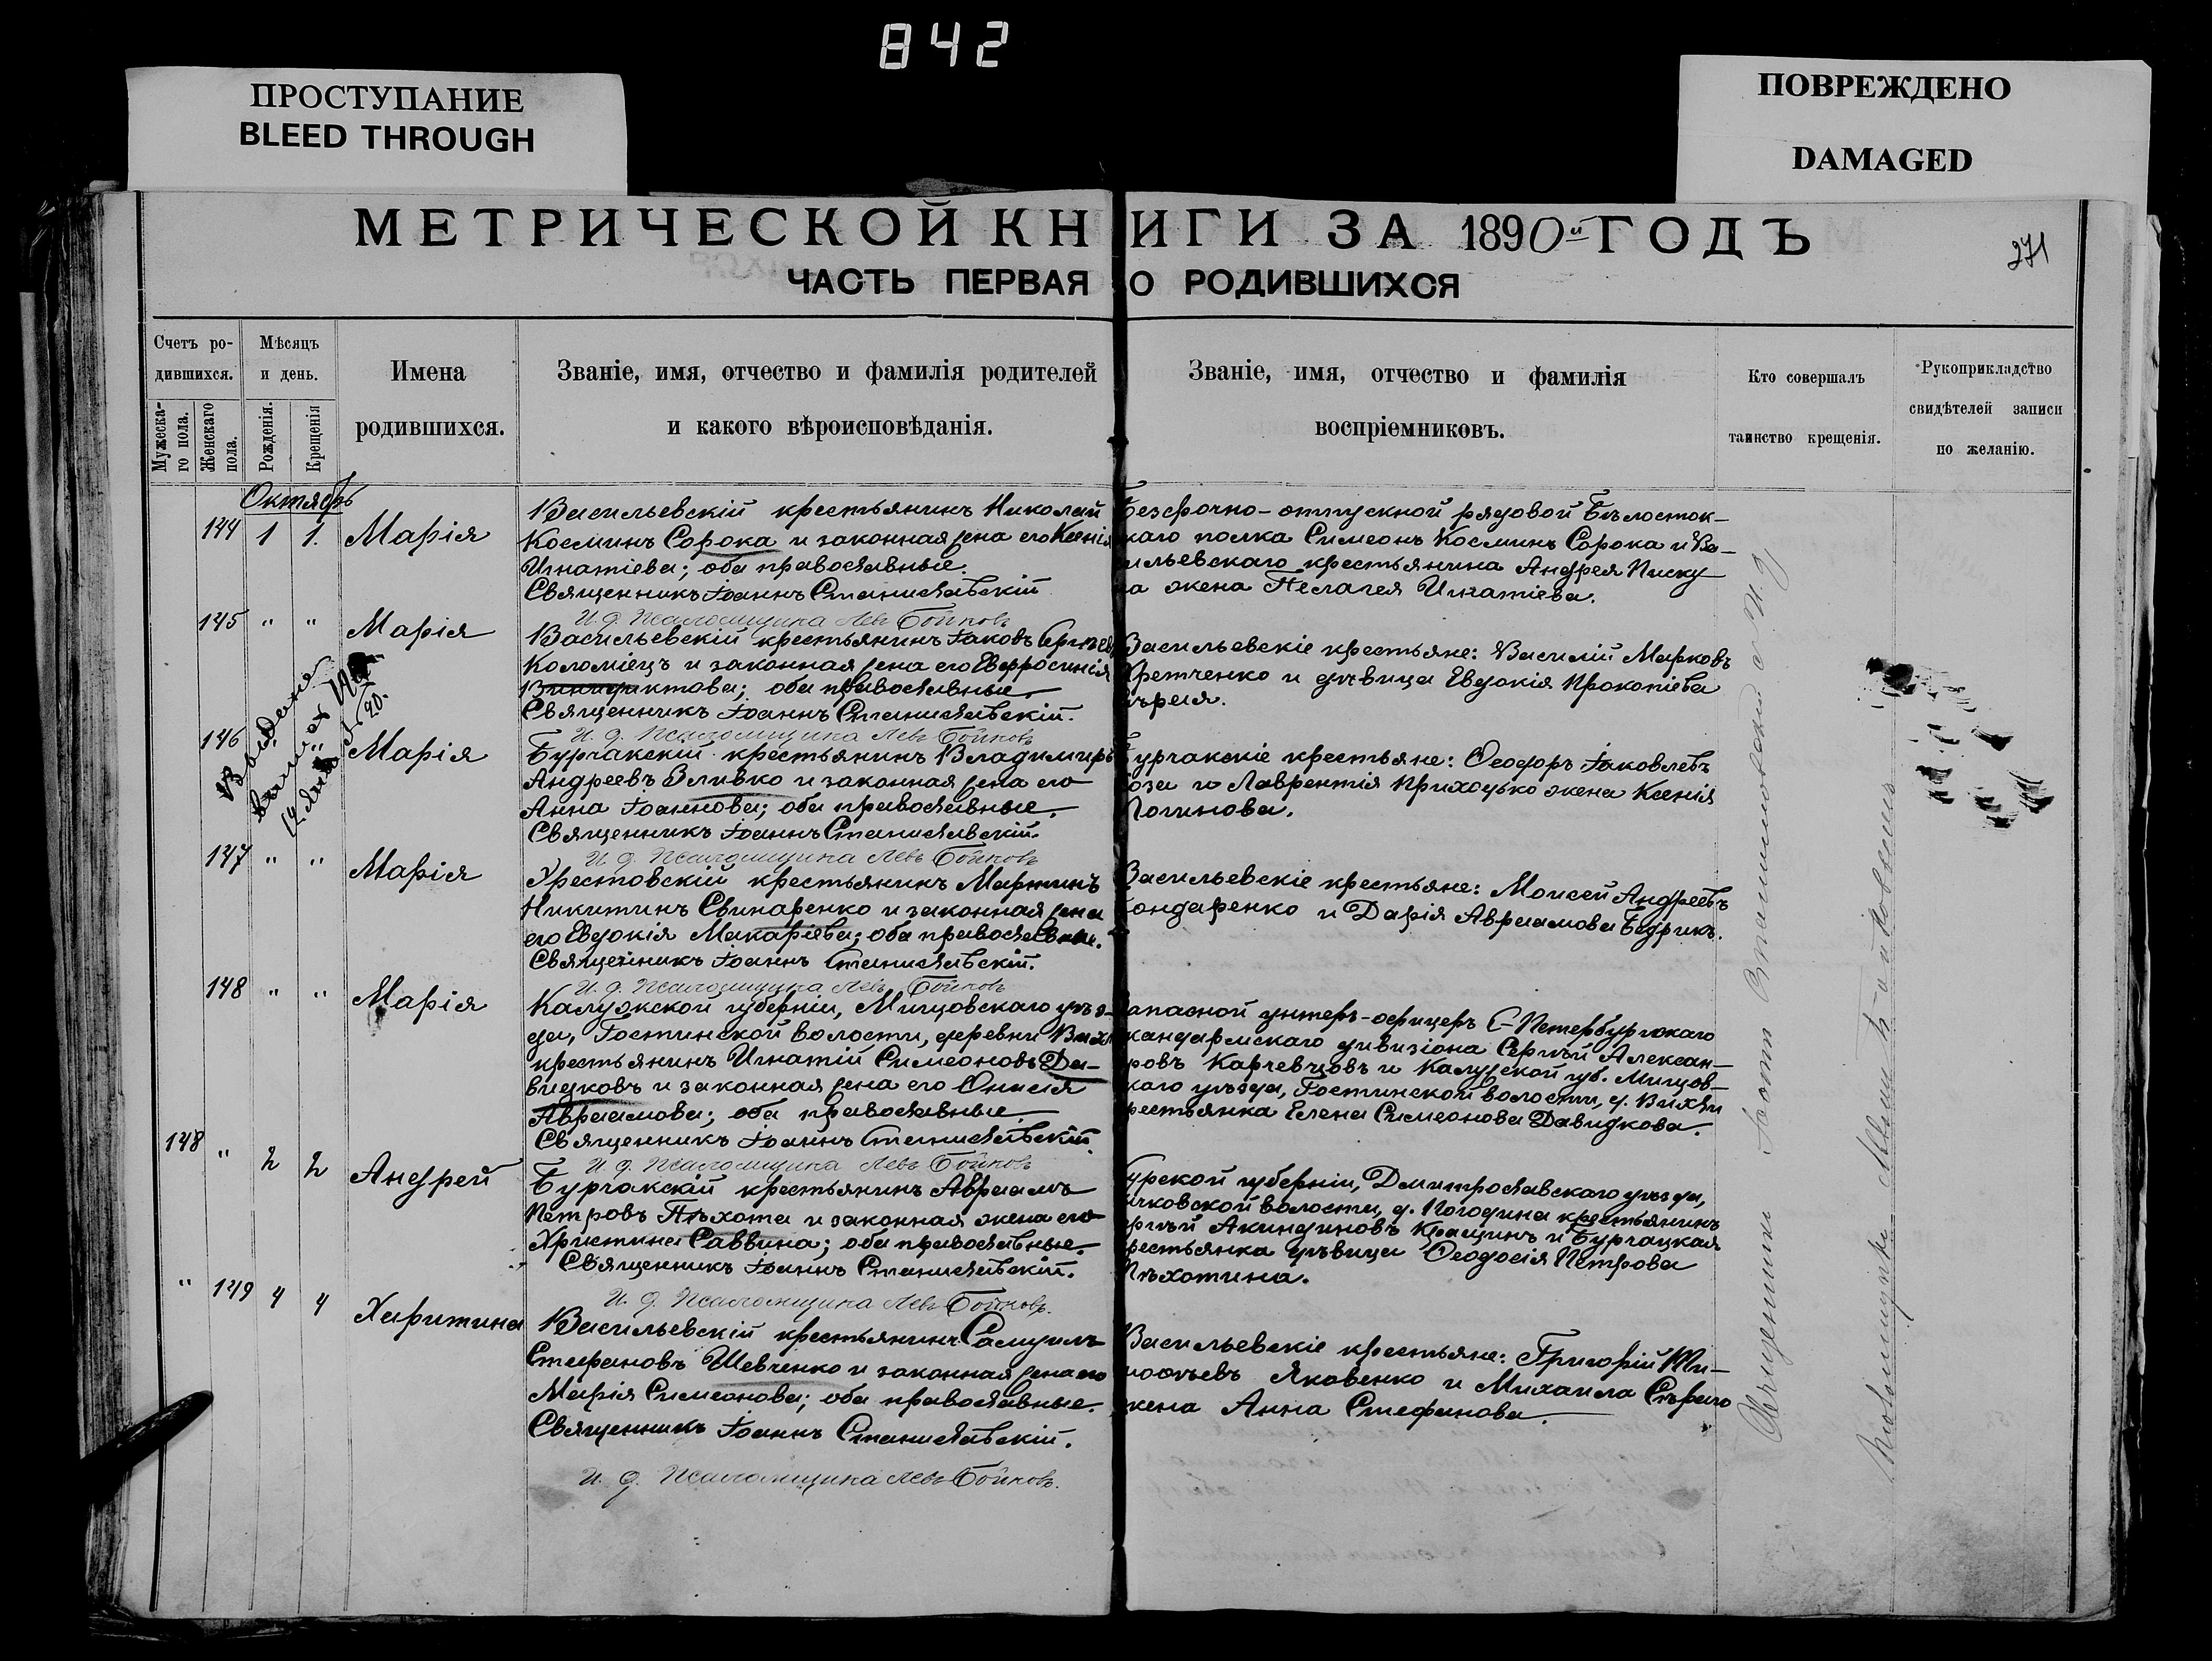 842
ПРОСТУПАНИЕ
BLEED THROUGH
ПОВРЕЖДЕНО
DAMAGED
МЕТРИЧЕСКОЙ КНИГИ ЗА 1890й ГОДЪ
271
ЧАСТЬ ПЕРВАЯ О РОДИВШИХСЯ
Счетъ ро-
дившихся.
Мужеска-
го пола.
Женскаго
пола.
Мѣсяцъ
и день.
Рожденія.
Крещенія
Имена
родившихся.
Званіе, имя, отчество и фамилія родителей
и какого вѣроисповѣданія.
Званіе, имя, отчество и фамилія
воспріемниковъ.
Кто совершалъ
таинство крещенія.
Рукоприкладство
свидѣтелей записи
по желанію.
Октябрь
144 1 1. Марія
Васильевскій крестьянинъ Николай
Косминъ Сорока и законная жена его Ксенія
Игнатіева; оба православные.
Священникъ Іоаннъ Станиславскій
И. д. Псаломщика Левъ Бойковъ
Безсрочно-отпускной рядовой Бѣлосток-
скаго полка Симеонъ Косминъ Сорока и Ва-
сильевскаго крестьянина Андрея Писку
на жена Пелагея Игнатіева.
145 " " Марія
Васильевскій крестьянинъ Іаковъ Сергѣевъ
Коломіецъ и законная жена его Евфросинія
оба православные.
Священникъ Іоаннъ Станиславскій.
И. д. Псаломщика Левъ Бойковъ
Васильевскіе крестьяне: Василій Марковъ
и дѣвица Евдокія Прокопіева
146 Марія
Бурчакскій крестьянинъ Владимиръ
Андреевъ Зливко и законная жена его
Анна Іоаннова; оба православные.
Священникъ Іоаннъ Станиславскій.
И. д. Псаломщика Левъ Бойковъ
Бурчакскіе крестьяне: Ѳеодоръ Іаковлевъ
Коза и Лаврентія Приходько жена Ксенія
Логинова.
147 " " Марія
крестьянинъ Мартинъ
Никитинъ Свинаренко и законная жена
его Евдокія Макаріева; оба православные.
Священникъ Іоаннъ Станиславскій.
И. д. Псаломщика Левъ Бойковъ
Васильевскіе крестьяне: Моисей Андреевъ
Бондаренко и Дарія Авраамова Бедрикъ.
148 " " Марія
Калужской губерніи, Мищовскаго уѣз-
да, Гостинской волости, деревни
крестьянинъ Игнатій Симеоновъ Да-
видковъ и законная жена его Онисія
Авраамова; оба православные
Священникъ Іоаннъ Станиславскій
И. д. Псаломщика Левъ Бойковъ
Запасной унтеръ-офицеръ С-Петербургскаго
жандармскаго дивизіона Сергѣй Алексан-
дровъ Карчевцовъ и Калужской губ. Мищов-
скаго уѣзда, Гостинской волости, д.
крестьянка Елена Симеонова Давидкова.
148 " 2 2 Андрей
Бурчакскій крестьянинъ Авраамъ
Петровъ Пѣхота и законная жена его
Христина Саввина; оба православные.
Священникъ Іоаннъ Станиславскій.
И. д. Псаломщика Левъ Бойковъ.
губерніи, Дмитрославскаго уѣзда,
волости, д. Погодина крестьянинъ
Сергѣй Акиндиновъ и Бурчацкая
крестьянка дѣвица Ѳеодосія Петрова
Пѣхотина.
" 149 4 4 Харитина
Васильевскій крестьянинъ Самуилъ
Стефановъ Шевченко и законная жена его
Марія Симеонова; оба православные.
Священникъ Іоаннъ Станиславскій.
И. д. Псаломщика Левъ Бойковъ.
Васильевскіе крестьяне: Григорій Ти-
моѳѣевъ Яковенко и Михаила Сѣраго
жена Анна Стефанова.
Священникъ Іоаннъ Станиславскій с И. д.
Псаломщика Львомъ Бойковымъ